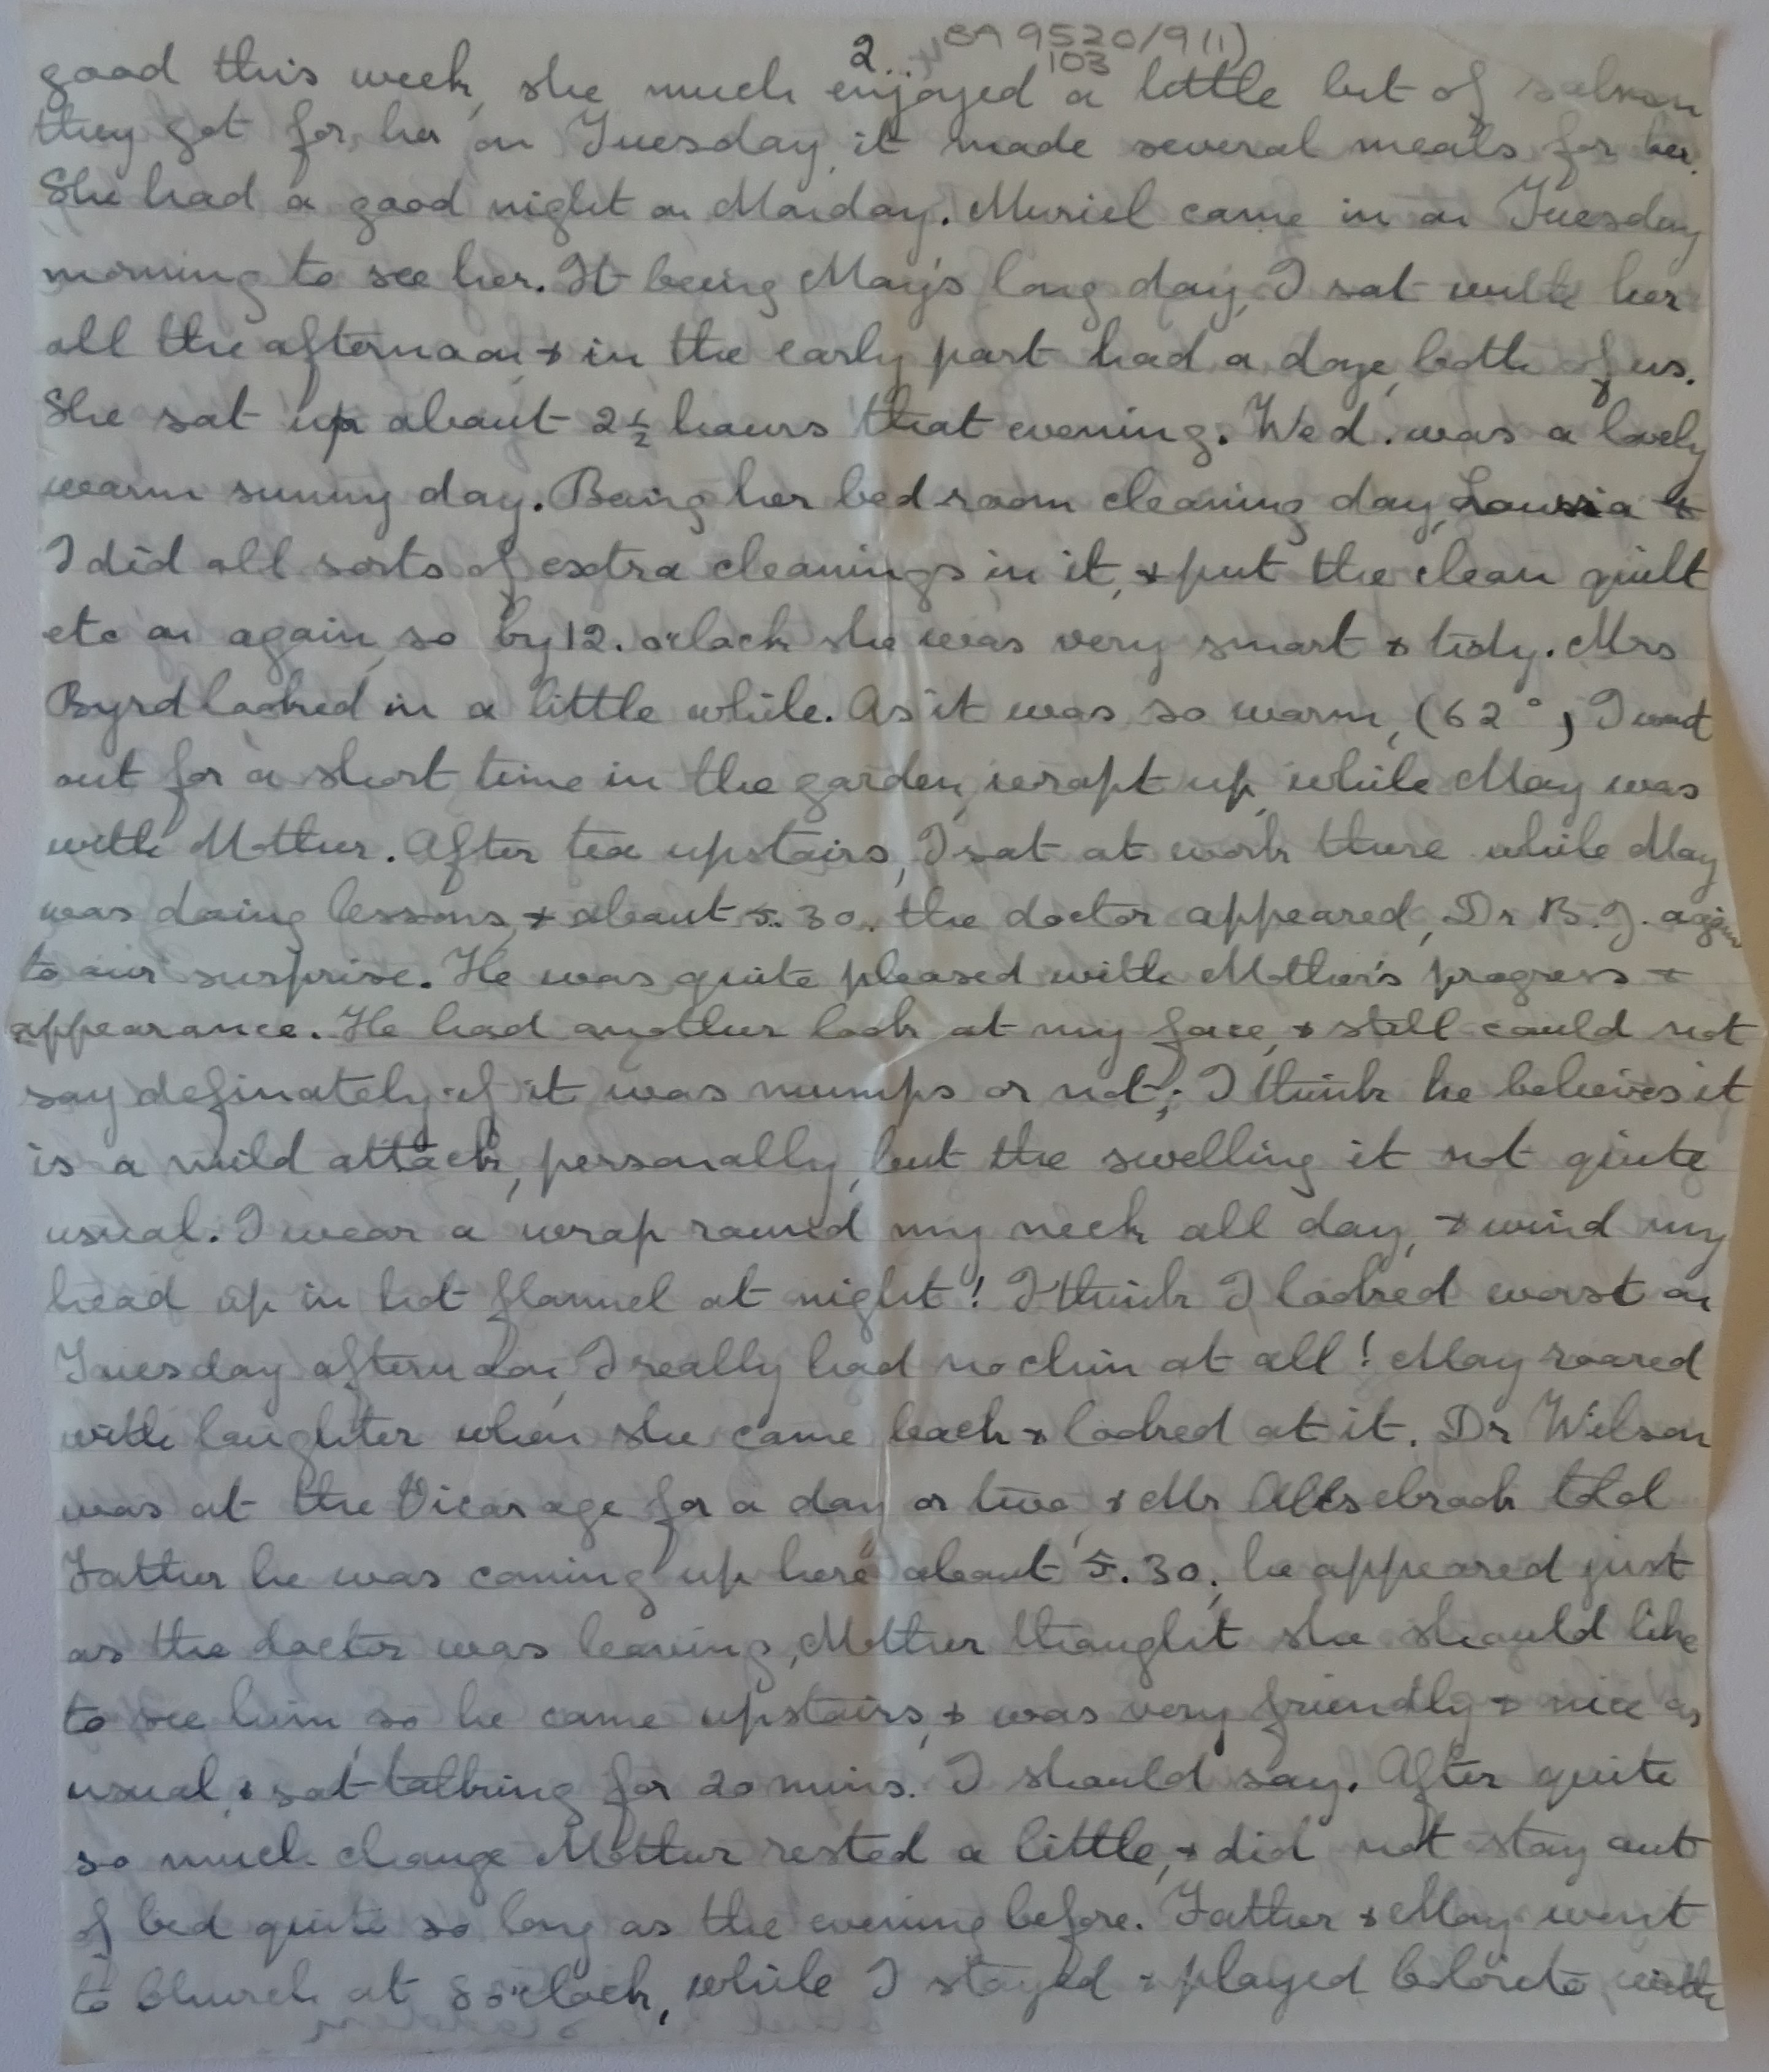 2... BA 9520/9(1)
103
good this week, she much enjoyed a little bit of salmon
they got for her on Tuesday, it made several meals for her.
She had a good night on Monday. Muriel came in on Tuesday
morning to see her. It being May's long day, I sat with her
all the afternoon, & in the early part had a doze, both of us.
She sat up about 2½ hours that evening. Wed. was a lovely
warm sunny day. Being her bedroom cleaning day, &
I did all sorts of extra cleanings in it, & put the clean quilt
etc on again, so by 12. o'clock she was very smart & tidy. Mrs
Byrd looked in a little while. As it was so warm, (62°) I went
out for a short time in the garden, wrapt up, while May was
with Mother. After tea upstairs, I sat at work there while May
was doing lessons, & about 5.30. the doctor appeared, Dr B.J. again
to our surprise. He was quite pleased with Mother's progress &
appearance. He had another look at my face, & still could not
say definately if it was mumps or not; I think he believes it
is a mild attack, personally, but the swelling it not quite
usual. I wear a wrap round my neck all day, & wind my
head up in hot flannel at night! I think I looked worst on
Tuesday afternoon, I really had no chin at all! May roared
with laughter when she came back & looked at it. Dr Wilson
was at the Vicarage for a day or two, & Mr told
Father he was coming up here about 5.30; he appeared just
as the doctor was leaving, Mother thought she should like
to see him, so he came upstairs, & was very friendly & nice as
usual, & sat talking for 20 mins. I should say. After quite
so much change Mother rested a little, & did not stay out
of bed quite so long as the evening before. Father & May went
to Church at 8 o'clock, while I stayed & played with